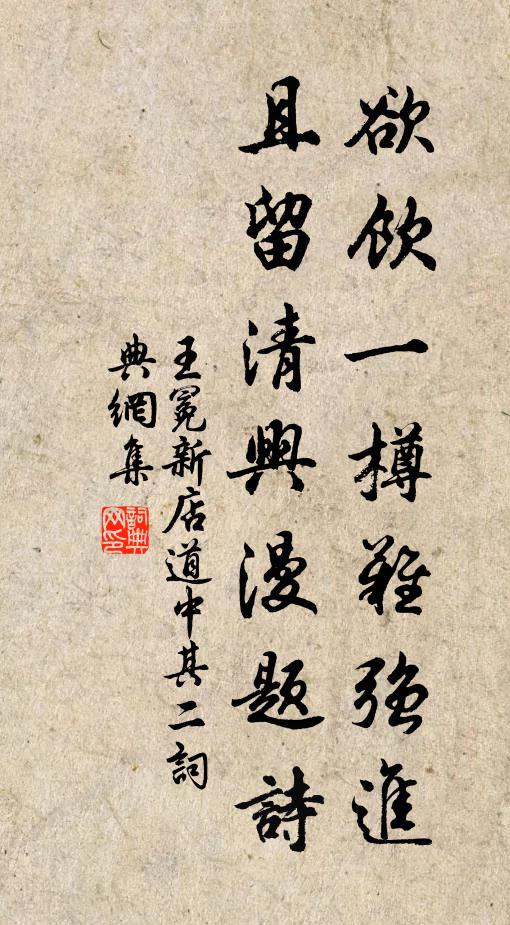 欲飲一樽難強進
且留清興漫題詩
王冕新店道中其二詞
典網集
詞典
网印